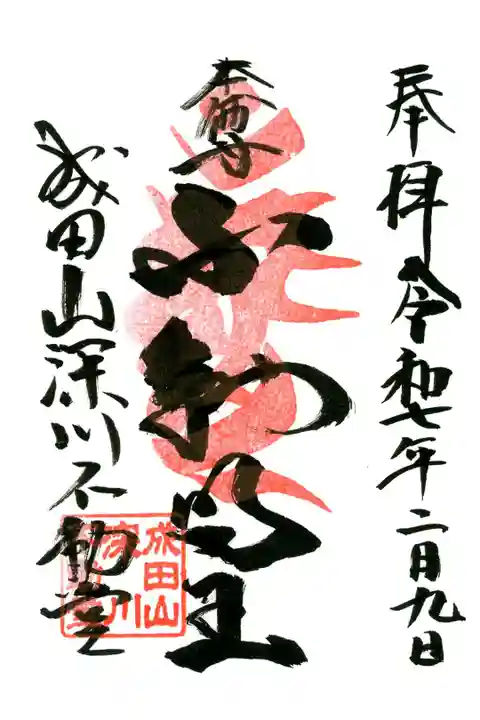 奉拝 令和七年二月九日
本尊
不動明王
成田山深川不動堂
成田山
深川